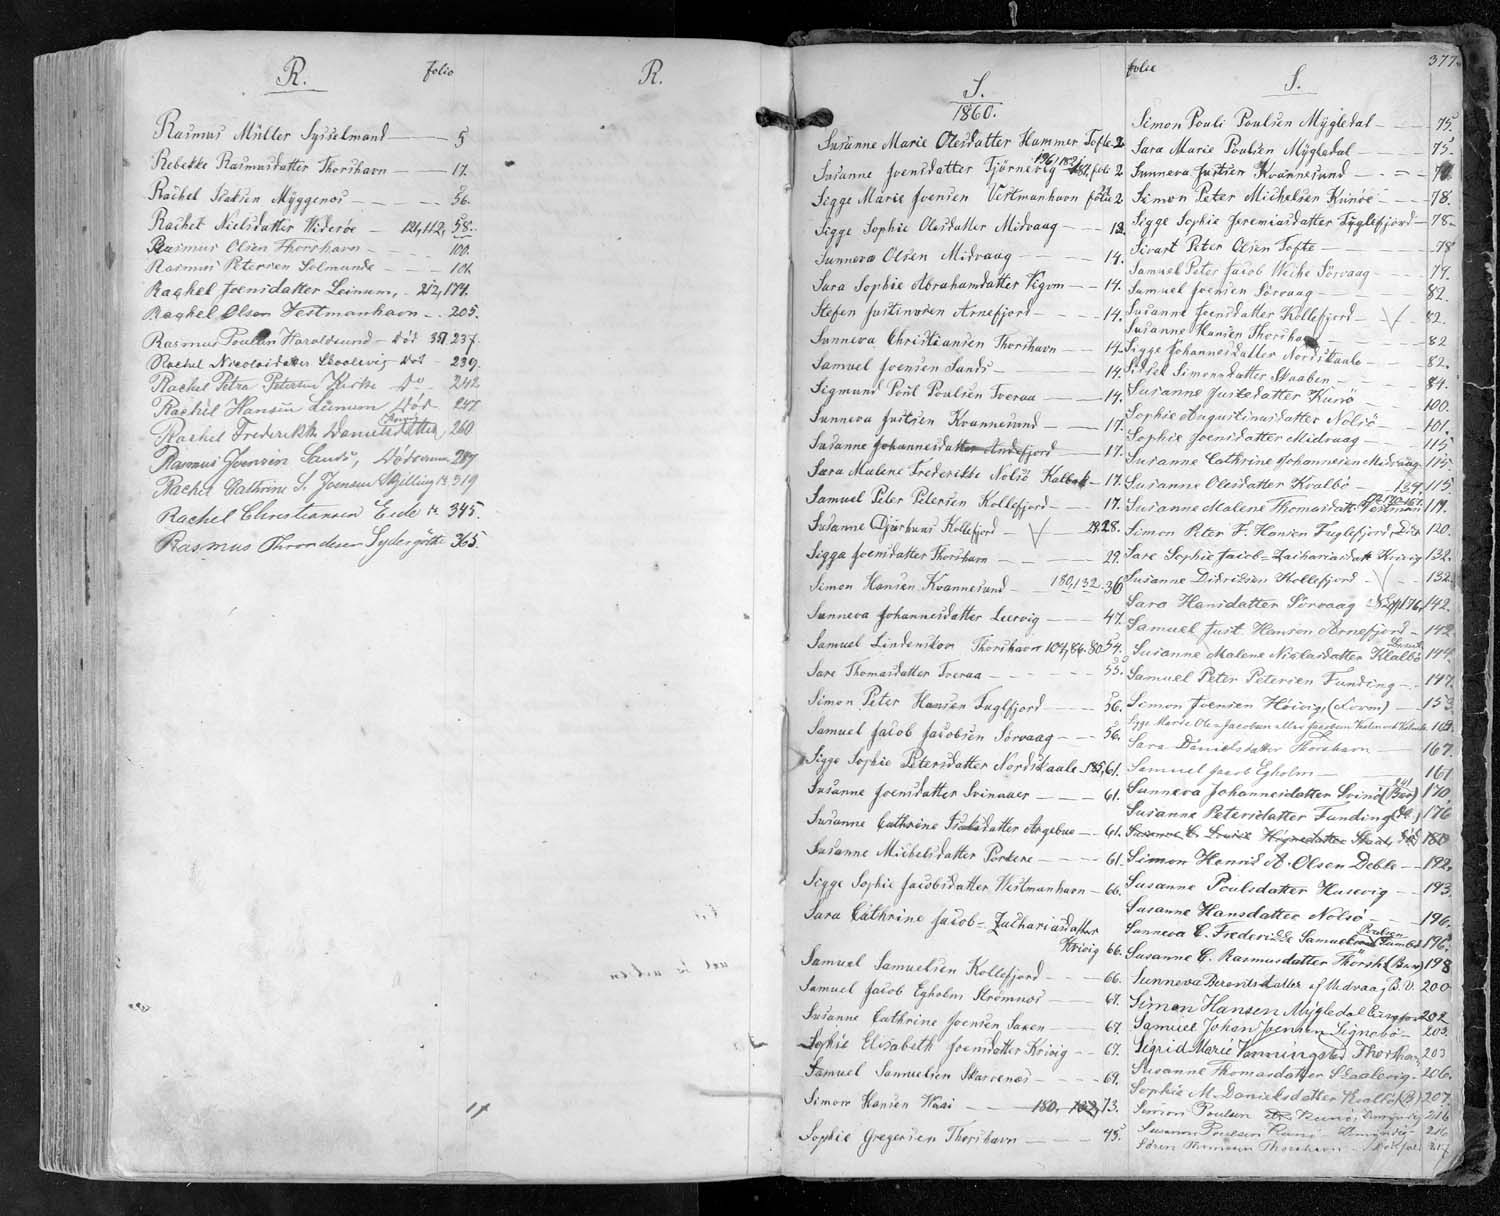 R.
folio
Rasmus Müller Sysselmand 5
Rebekke Rasmusdatter Thorshavn 17.
Rachel Isaksen Myggenæs 56.
Rachel Nielsdatter Viderøe 121, 112, 58.
Rasmus Olsen Thorshavn 100.
Rasmus Petersen Selmunde 101.
Raghel Joensdatter Leinum, 212, 174.
Raghel Olsen Vestmanhavn 205.
Rasmus Poulsen Haraldsund død 351 237.
Rachel Nicolaidatter Skaalevig død 239.
Rachel Petra Petersen Kirke do 242
Rachel Hansen Leinum død 247
Rachel Frederikke Danielsdatter 260
Rasmus Joensen Sands, 287
Rachel Cathrine S. Joensen Skjelling 319
Rachel Christiansen Eide 345.
Rasmus Throndesen Sydergöte 365.
14
R.
S.
1860.
Susanne Marie Olesdatter Hammer Tofte 2
Susanne Joensdatter Tjörnevig 196, 182, folio 2
Sigge Marie Joensen Vestmanhavn folio 2
Sigge Sophie Olesdatter Midvaag 12.
Sunneva Olsen Midvaag 14.
Sara Sophie Abrahamsdatter Vigom 14.
Stefen Justinusen Arnefjord 14.
Sunneva Christiansen Thorshavn 14.
Samuel Joensen Sands 14.
Sigmund Poul Poulsen Tveraa 14.
Sunneva Justsen Kvannesund 17.
Susanne Johannesdatter Andefjord 17.
Sara Malene Frederikke Nolsö Kalbak 17.
Samuel Peter Petersen Kollefjord 17.
Susanne Djurhuus Kollefjord 28.
Sigga Joensdatter Thorshavn 29.
Simon Hansen Kvannesund 180, 132. 36
Sunneva Johannesdatter Leervig 47.
Samuel Lindenskov Thorshavn 104, 86. 80. 54.
Sare Thomasdatter Tveraa 55.
Simon Peter Hansen Fuglfjord 56.
Samuel Jacob Jacobsen Sörvaag 56.
Sigge Sophie Petersdatter Nordskaale 185, 61.
Susanne Joensdatter Svinaaer 61.
Susanne Cathrine Isaksdatter Argebue 61.
Susanne Michelsdatter Porkere 61.
Sigge Sophie Jacobsdatter Westmanhavn 66.
Sara Cathrine Jacob-Zachariasdatter
Kvivig 66.
Samuel Samuelsen Kollefjord 66.
Samuel Jacob Egholm Strömnæs 67.
Susanne Cathrine Joensen Saxen 67.
Sophie Elisabeth Joensdatter Kvivig 67.
Samuel Samuelsen Skarvenæs 69.
Simon Hansen Waai 180. 132, 73.
Sophie Gregersen Thorshavn 45.
folie
S.
377.
Simon Pouli Poulsen Mygledal 75.
Sara Marie Poulsen Mygledal 75
Sunneva Justsen Kvannesund
Simon Peter Michelsen Kunöe 78.
Sigge Sophie Jeremiasdatter Fuglefjord 78.
Sivart Peter Olsen Tofte 78
Samuel Peter Jacob Weihe Sörvaag 79.
Samuel Joensen Sörvaag 82.
Susanne Joensdatter Kollefjord 82.
Susanne Hansen Thorshavn 82
Sigge Johannesdatter Nordskaale 82.
Sidsel Simonsdatter Skaaben 84.
Susanne Justsdatter Kunö 100.
Sophie Augustinusdatter Nolsö 101.
Sophie Joensdatter Midvaag 115
Susanne Cathrine Johannesen Midvaag 115
Susanne Olesdatter Kvalbö 134. 115
Susanne Malene Thomasdatter Vestman 119.
Simon Peter F. Hansen Fuglefjord 120.
Sare Sophie Jacob-Zachariasdatt Kvivig 132.
Susanne Didriksen Kollefjord 132.
Sara Hansdatter Sörvaag 176, 142.
Samuel Just. Hanson Arnefjord 142.
Susanne Malene Niclasdatter Kvalbö 144.
Samuel Peter Petersen Funding 147.
Simon Joensen Hoivig, 153.
Sara Danielsdatter Thorshavn 167.
Samuel Jacob Egholm 161
Sunneva Johannesdatter Svinö 241 170
Susanne Petersdatter Funding 176
180
Simon Henrik A. Olsen Deble 192.
Susanne Poulsdatter Husevig 193.
Susanne Hansdatter Nolsö 196.
Sunneva C. Frederikke Samuelsen Poulsen Lambe 196.
Susanne C. Rasmusdatter Thorsh. 198
Sunneva Berentsdatter af Midvaag B. V. 200
Simon Hansen Mygledal 202
Samuel Johan Joensen Signebö 203.
Sigrid Marie Vanningsted Thorshavn 203
Susanne Thomasdatter Skaalevig 206.
Sophie M. Danielsdatter Kvalbö (B) 207.
Simon Poulsen Kunö 216
Susanne Poulsen Kunö 216
Sören Thomsen Thorshavn 217